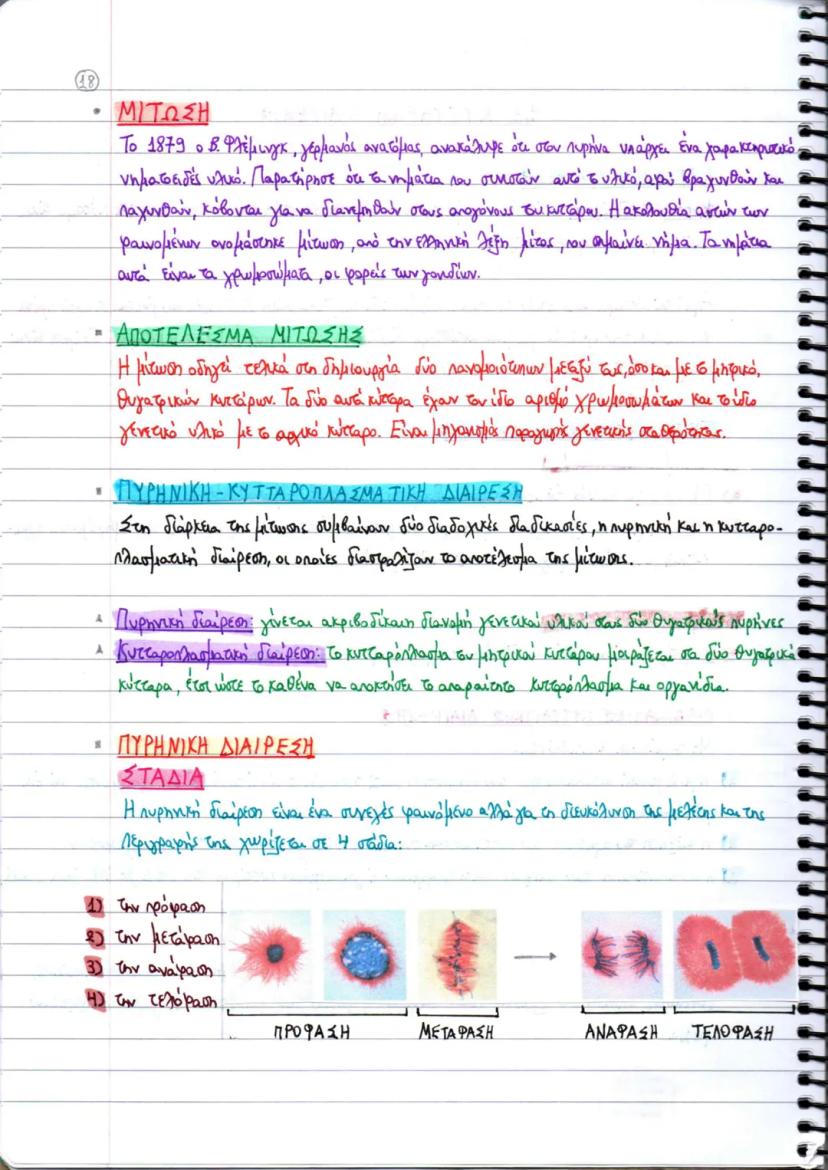 18
ΜΙΤΩΣΗ
Το 1879 ο Β. Φλέμινγκ, γερμανός ανατόμος, ανακάλυψε ότι στον πυρήνα υπάρχει ένα χαρακτηριστικό
νηματοειδές υλικό. Παρατήρησε ότι τα νημάτια που συνιστούν αυτό το υλικό, αφού βραχυνθούν και
παχυνθούν, κόβονται για να διανεμηθούν στους απογόνους του κυττάρου. Η ακολουθία αυτών των
φαινομένων ονομάστηκε μίτωση, από την ελληνική λέξη μίτος, που σημαίνει νήμα. Τα νημάτια
αυτά είναι τα χρωμοσώματα, οι φορείς των γονιδίων.
ΑΠΟΤΕΛΕΣΜΑ ΜΙΤΩΣΗΣ
Η μίτωση οδηγεί τελικά στη δημιουργία δύο πανομοιότυπων μεταξύ τους, όσο και με το μητρικό,
θυγατρικών κυττάρων. Τα δύο αυτά κύτταρα έχουν τον ίδιο αριθμό χρωμοσωμάτων και το ίδιο
γενετικό υλικό με το αρχικό κύτταρο. Είναι μηχανισμός παραγωγής γενετικής σταθερότητας.
ΠΥΡΗΝΙΚΗ-ΚΥΤΤΑΡΟΠΛΑΣΜΑΤΙΚΗ ΔΙΑΙΡΕΣΗ
Στη διάρκεια της μίτωσης συμβαίνουν δύο διαδοχικές διαδικασίες, η πυρηνική και η κυτταρο-
πλασματική διαίρεση, οι οποίες διασφαλίζουν το αποτέλεσμα της μίτωσης.
Πυρηνική διαίρεση: γίνεται ακριβοδίκαιη διανομή γενετικού υλικού στους δύο θυγατρικούς πυρήνες
Κυτταροπλασματική διαίρεση: το κυτταρόπλασμα του μητρικού κυττάρου μοιράζεται στα δύο θυγατρικά
κύτταρα, έτσι ώστε το καθένα να αποκτήσει το απαραίτητο κυτταρόπλασμα και οργανίδια.
ΠΥΡΗΝΙΚΗ ΔΙΑΙΡΕΣΗ
ΣΤΑΔΙΑ
Η πυρηνική διαίρεση είναι ένα συνεχές φαινόμενο αλλά για τη διευκόλυνση της μελέτης και της
περιγραφής της χωρίζεται σε 4 στάδια:
1) την πρόφαση
2) την μετάφαση
3) την ανάφαση
4) την τελόφαση
ΠΡΟΦΑΣΗ ΜΕΤΑΦΑΣΗ ΑΝΑΦΑΣΗ ΤΕΛΟΦΑΣΗ